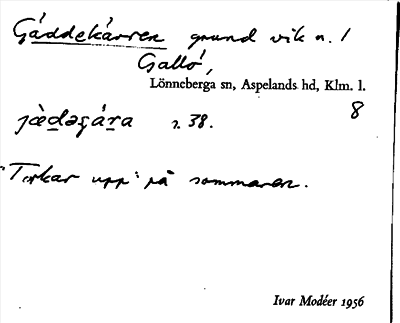 Gäddekärren grund vik n. /
Gallö,
Lönneberga sn, Aspelands hd, Klm. l.
8
jæ̀dəçára r. 38.
Torkar upp på sommaren.
Ivar Modéer 1956